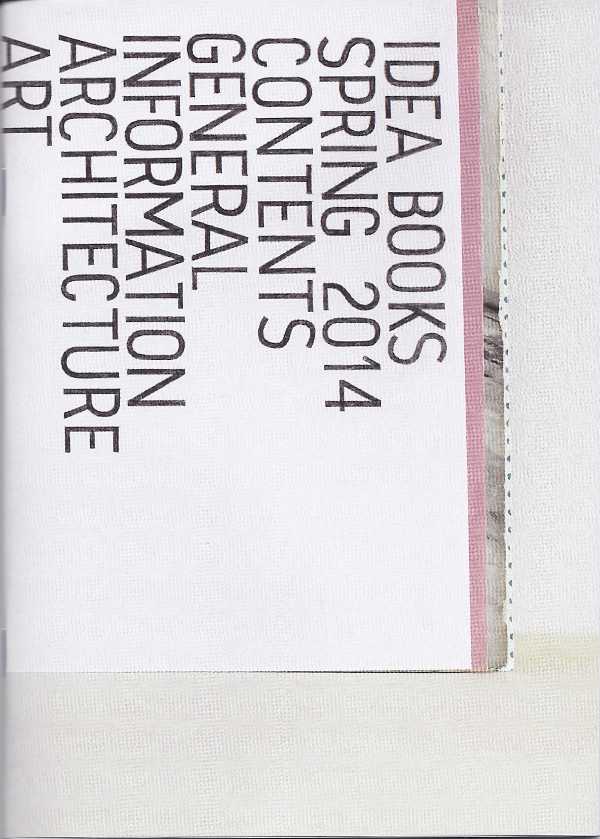 IDEA BOOKS
SPRING 2014
CONTENTS
GENERAL
INFORMATION
ARCHITECTURE
ART